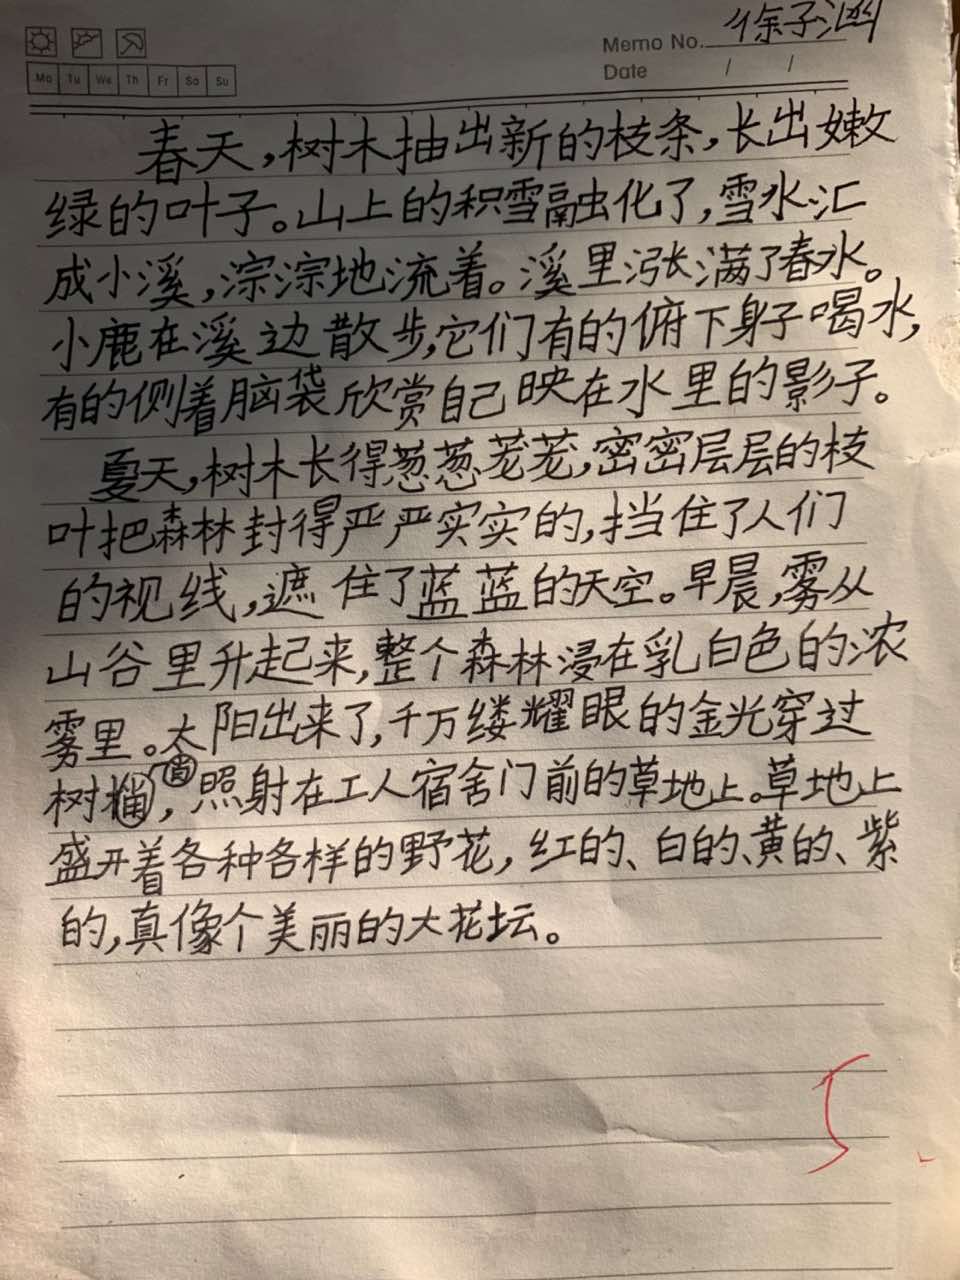 Memo No. 徐子汹
Date / /
Mo Tu We Th Fr Sa Su
春天,树木抽出新的枝条,长出嫩
绿的叶子。山上的积雪融化了,雪水汇
成小溪,淙淙地流着。溪里涨满了春水。
小鹿在溪边散步,它们有的俯下身子喝水,
有的侧着脑袋欣赏自己映在水里的影子。
夏天,树木长得葱葱茏茏,密密层层的枝
叶把森林封得严严实实的,挡住了人们
的视线,遮住了蓝蓝的天空。早晨,雾从
山谷里升起来,整个森林浸在乳白色的浓
雾里。太阳出来了,千万缕耀眼的金光穿过
树梢,照射在工人宿舍门前的草地上。草地上
盛开着各种各样的野花,红的、白的、黄的、紫
的,真像个美丽的大花坛。